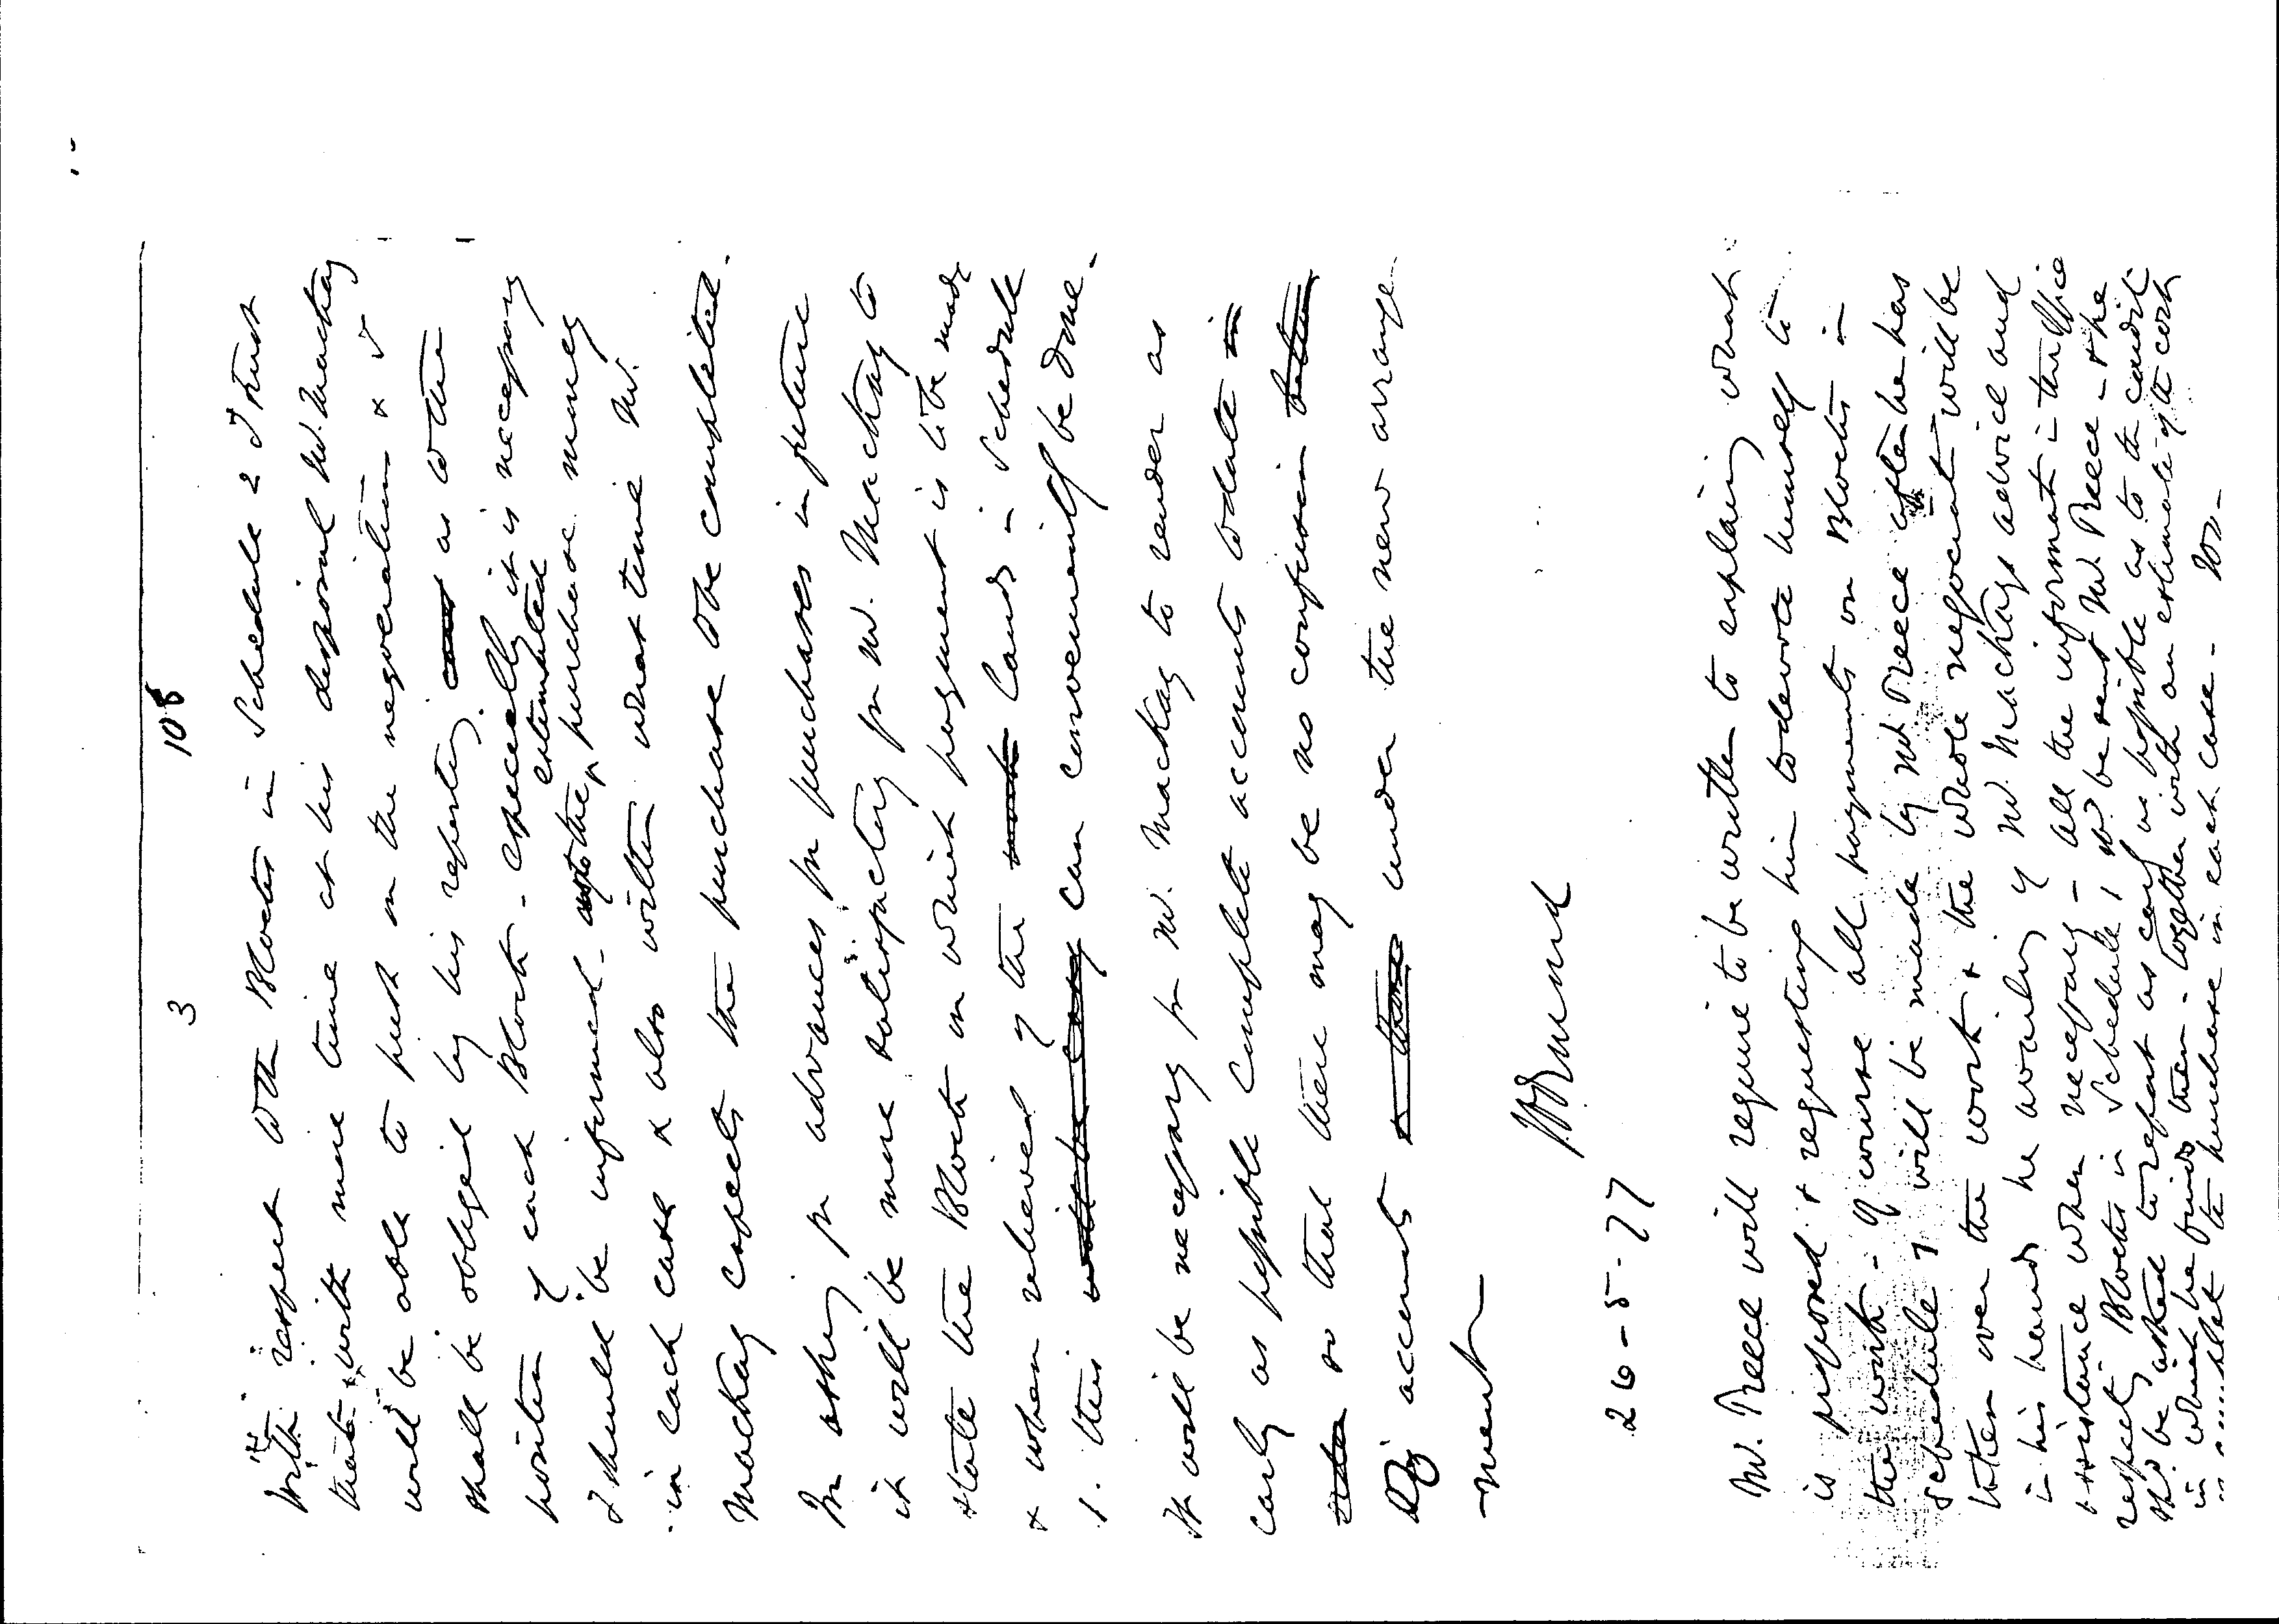 3 108
With respect to the Blocks in Schedule 2 I trust
that with more time at his disposal Mr. Mackay
will be able to push on the negociations & I
shall be obliged by his reporting as to the
position of each Block - especially it is necessary
I should be informed as to the estimated purchase money
in each case & also within what time Mr.
Mackay expects the purchase to be completed.
In asking for advances for purchases in future
it will be more satisfactory for Mr. Mackay to
state the Block on which payment is to be made
& when relieved of the Lands in Schedule
1. this will be easy can conveniently be done.
It will be necessary for Mr. Mackay to render as
early as possible complete accounts to date in
so that there may be no confusion between
accounts & those under the new arrange
-ment
26-5-77
Mr. Preece will require to be written to explaining what
is proposed & requesting him to devote himself to
the work - Of course all payments on Blocks in
Schedule 1 will be made by Mr. Preece after he has
taken over the work & the whole negociat will be
in his hands he availing of Mr. Mackays advice and
assistance when necessary - all the informatn in this Office
respectg Blocks in Schedule 1 shd be sent Mr. Preece - & he
shd be asked to report as early as possible as to the conditn
in which he finds them - together with an estimate of the cost
to complete the purchase in each case -